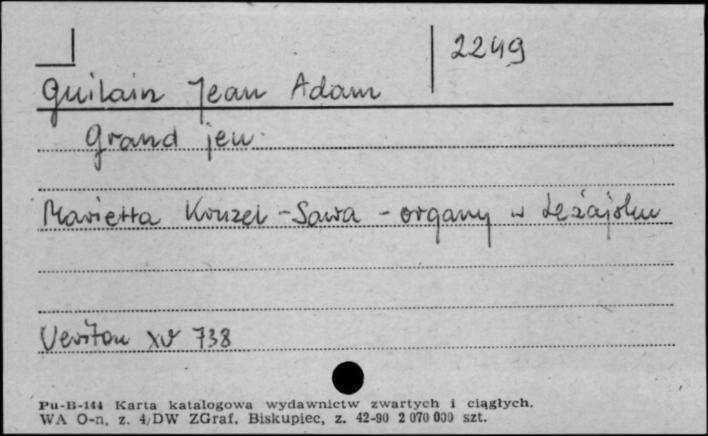 2249
Guilain Jean Adam
Grand jeu
Marietta Kruzel-Sawa - organy w Leżajsku
Veriton XV 738
Pu-B-144 Karta katalogowa wydawnictw zwartych i ciągłych.
WA O-n, z. 4/DW ZGraf. Biskupiec, z. 42-90 2 070 000 szt.